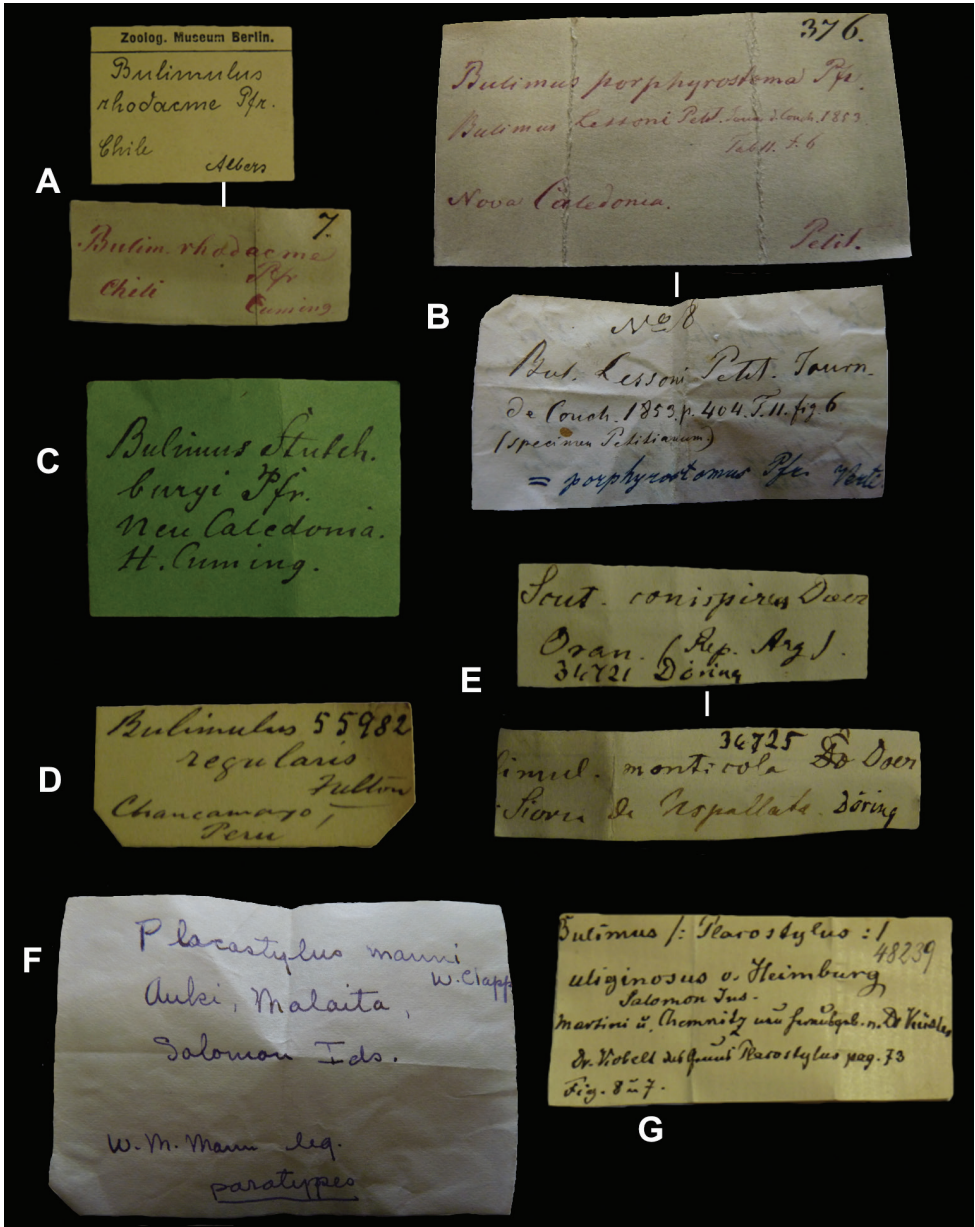 A
Zoolog. Museum Berlin.
Bulimulus
rhodacme Pfr.
Chile
Albers
7.
Bulim. rhodacme
Pfr
Chili
Cuming
B
376.
Bulimus porphyrostoma Pfr.
Bulimus Lessoni Petit. Journ. d. Conch. 1853.
Tab 11. f. 6
Nova Caledonia.
Petit.
No 8
Bul. Lessoni Petit. Journ.
de Conch. 1853. p. 404. T. 11. fig. 6
(specimen Petitianum)
= porphyrostomus Pfr.
C
Bulimus Stutch.
buryi Pfr.
Neu Caledonia.
H. Cuming.
D
Bulimulus 55982
regularis
Fulton
Chancamayo,
Peru
E
Scut. conispirus Doer
Oran. (Rep. Arg).
34721 Döring
34725
imul. monticola Doer
Sierra de Uspallata. Döring
F
Placostylus manni
W. Clapp
Auki, Malaita,
Solomon Ids.
W. M. Mann leg.
paratypes
G
Bulimus /: Placostylus :/
48239
uliginosus v. Heimburg
Salomon Ins.
Martini u. Chemnitz neu herausgeb. v. Dr Küster
Dr. Kobelt das Genus Placostylus pag. 73
Fig. 8 u 7.